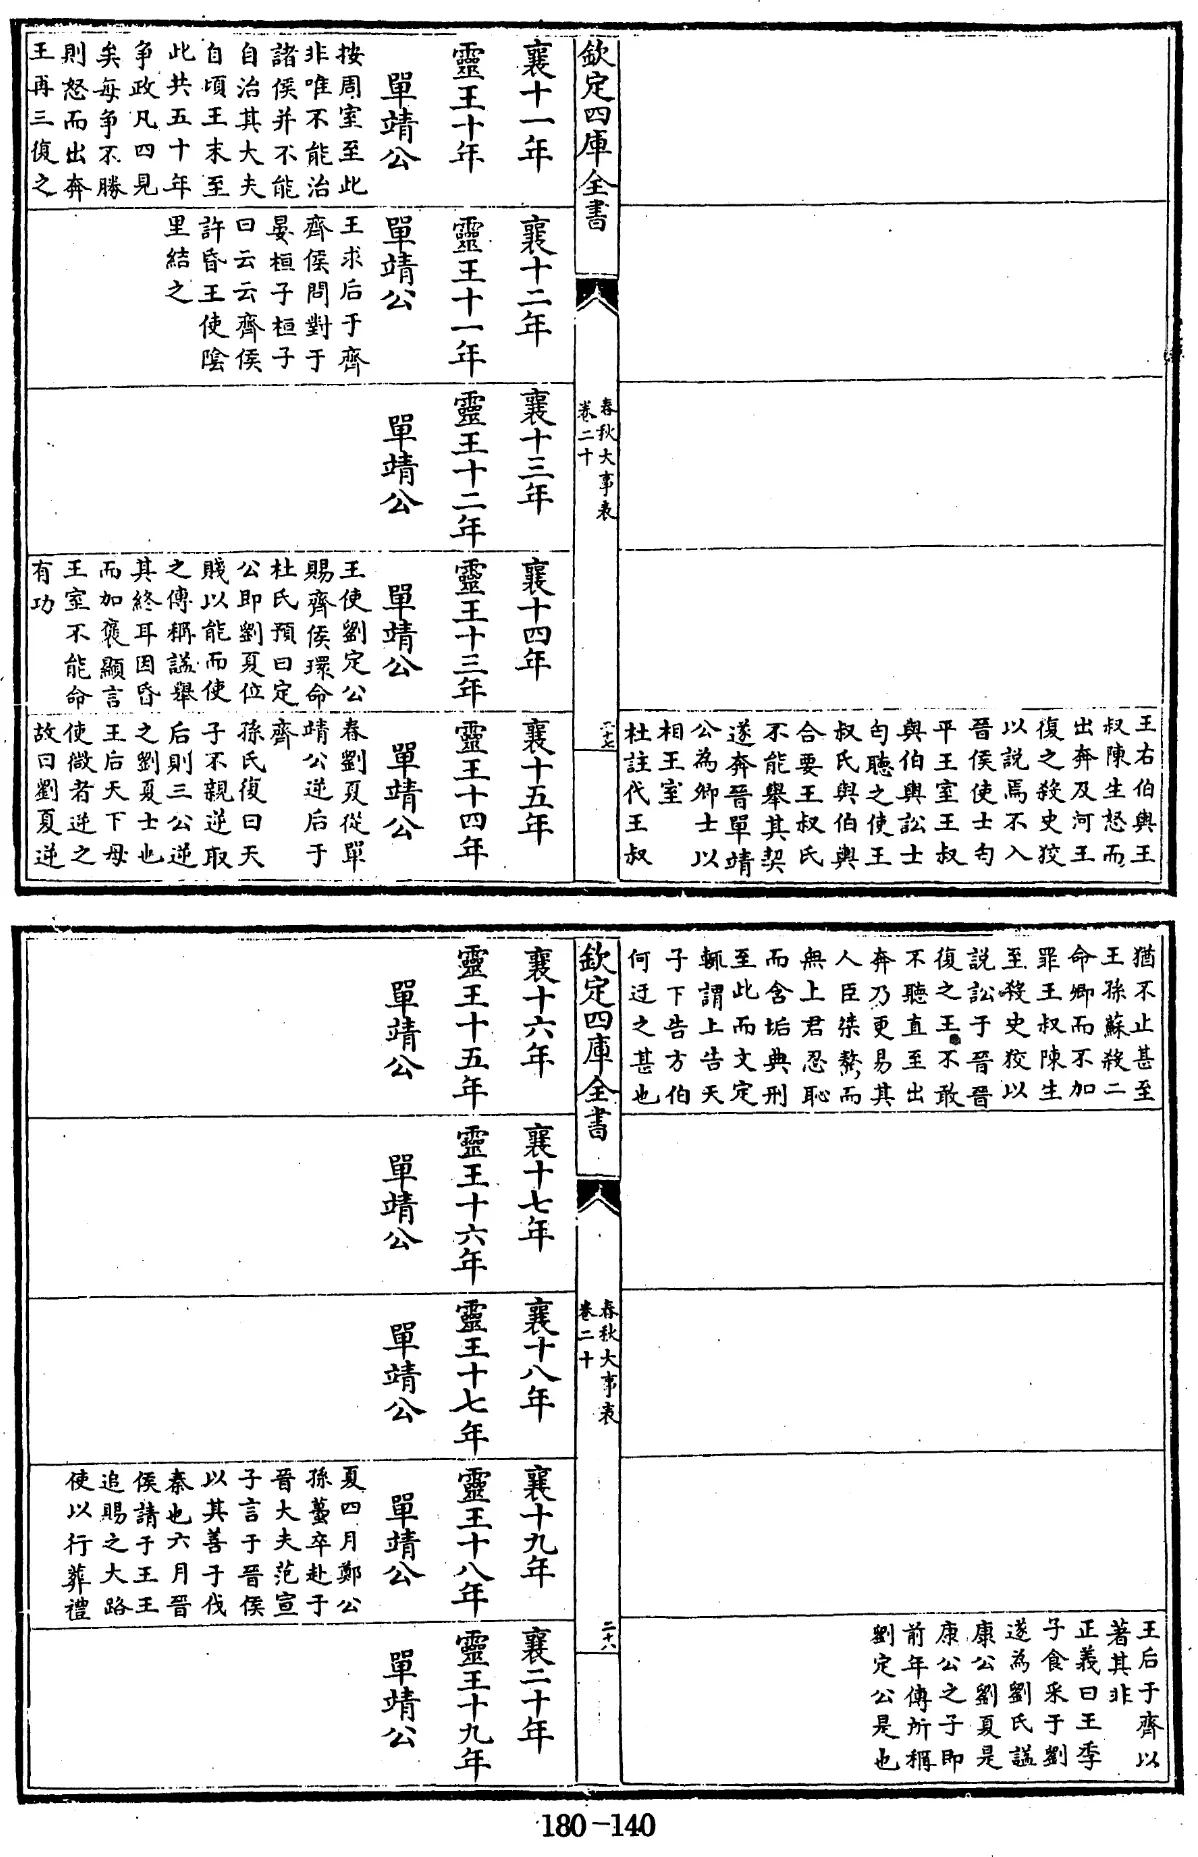 王右伯輿王
叔陳生怒而
出奔及河王
復之殺史狡
以説焉不入
晉侯使士匄
平王室王叔
與伯輿訟士
匄聽之使王
叔氏與伯輿
合要王叔氏
不能舉其契
遂奔晉單靖
公為卿士以
相王室
杜註代王叔
欽定四庫全書
春秋大事表
卷二十
二十七
襄十一年
靈王十年
單靖公
按周室至此
非唯不能治
諸侯并不能
自治其大夫
自頃王末至
此共五十年
爭政凡四見
矣每爭不勝
則怒而出奔
王再三復之
襄十二年
靈王十一年
單靖公
王求后于齊
齊侯問對于
晏桓子桓子
曰云云齊侯
許昏王使陰
里結之
襄十三年
靈王十二年
單靖公
襄十四年
靈王十三年
單靖公
王使劉定公
賜齊侯環命
杜氏預曰定
公即劉夏位
賤以能而使
之傳稱諡舉
其終耳因昏
而加褒顯言
王室不能命
有功
襄十五年
靈王十四年
單靖公
春劉夏從單
靖公逆后于
齊
孫氏復曰天
子不親逆取
后則三公逆
之劉夏士也
王后天下母
使微者逆之
故曰劉夏逆
猶不止甚至
王孫蘇殺二
命卿而不加
罪王叔陳生
至殺史狡以
説訟于晉晉
復之王不敢
不聽直至出
奔乃更易其
人臣桀驁而
無上君忍恥
而含垢典刑
至此而文定
輒謂上告天
子下告方伯
何迂之甚也
王后于齊以
著其非
正義曰王季
子食采于劉
遂為劉氏諡
康公劉夏是
康公之子即
前年傳所稱
劉定公是也
欽定四庫全書
春秋大事表
卷二十
二十八
襄十六年
靈王十五年
單靖公
襄十七年
靈王十六年
單靖公
襄十八年
靈王十七年
單靖公
襄十九年
靈王十八年
單靖公
夏四月鄭公
孫蠆卒赴于
晉大夫范宣
子言于晉侯
以其善于伐
秦也六月晉
侯請于王王
追賜之大路
使以行葬禮
襄二十年
靈王十九年
單靖公
180-140